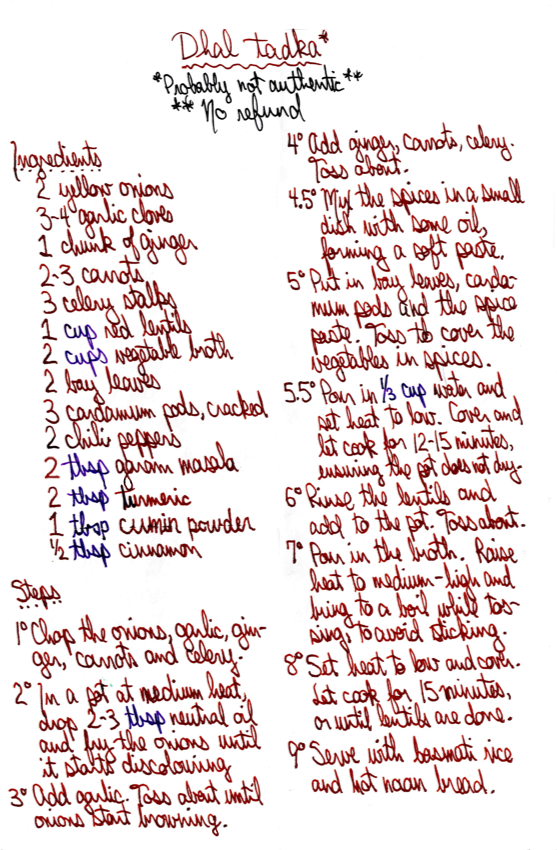 Dhal tadka*
*Probably not authentic**
** No refund
Ingredients
2 yellow onions
3-4 garlic cloves
1 chunk of ginger
2-3 carrots
3 celery stalks
1 cup red lentils
2 cups vegetable broth
2 bay leaves
3 cardamum pods, cracked
2 chili peppers
2 tbsp garam masala
2 tbsp turmeric
1 tbsp cumin powder
½ tbsp cinnamon
Steps
1° Chop the onions, garlic, gin-
ger, carrots and celery.
2° In a pot at medium heat,
drop 2-3 tbsp neutral oil
and fry the onions until
it starts discolouring
3° Add garlic. Toss about until
onions start browning.
4° Add ginger, carrots, celery.
Toss about.
4.5° Mix the spices in a small
dish with some oil,
forming a soft paste.
5° Put in bay leaves, carda-
mum pods and the spice
paste. Toss to cover the
vegetables in spices.
5.5° Pour in ⅓ cup water and
set heat to low. Cover and
let cook for 12-15 minutes,
ensuring the pot does not dry.
6° Rinse the lentils and
add to the pot. Toss about.
7° Pour in the broth. Raise
heat to medium-high and
bring to a boil while tos-
sing, to avoid sticking.
8° Set heat to low and cover.
Let cook for 15 minutes,
or until lentils are done.
9° Serve with basmati rice
and hot naan bread.